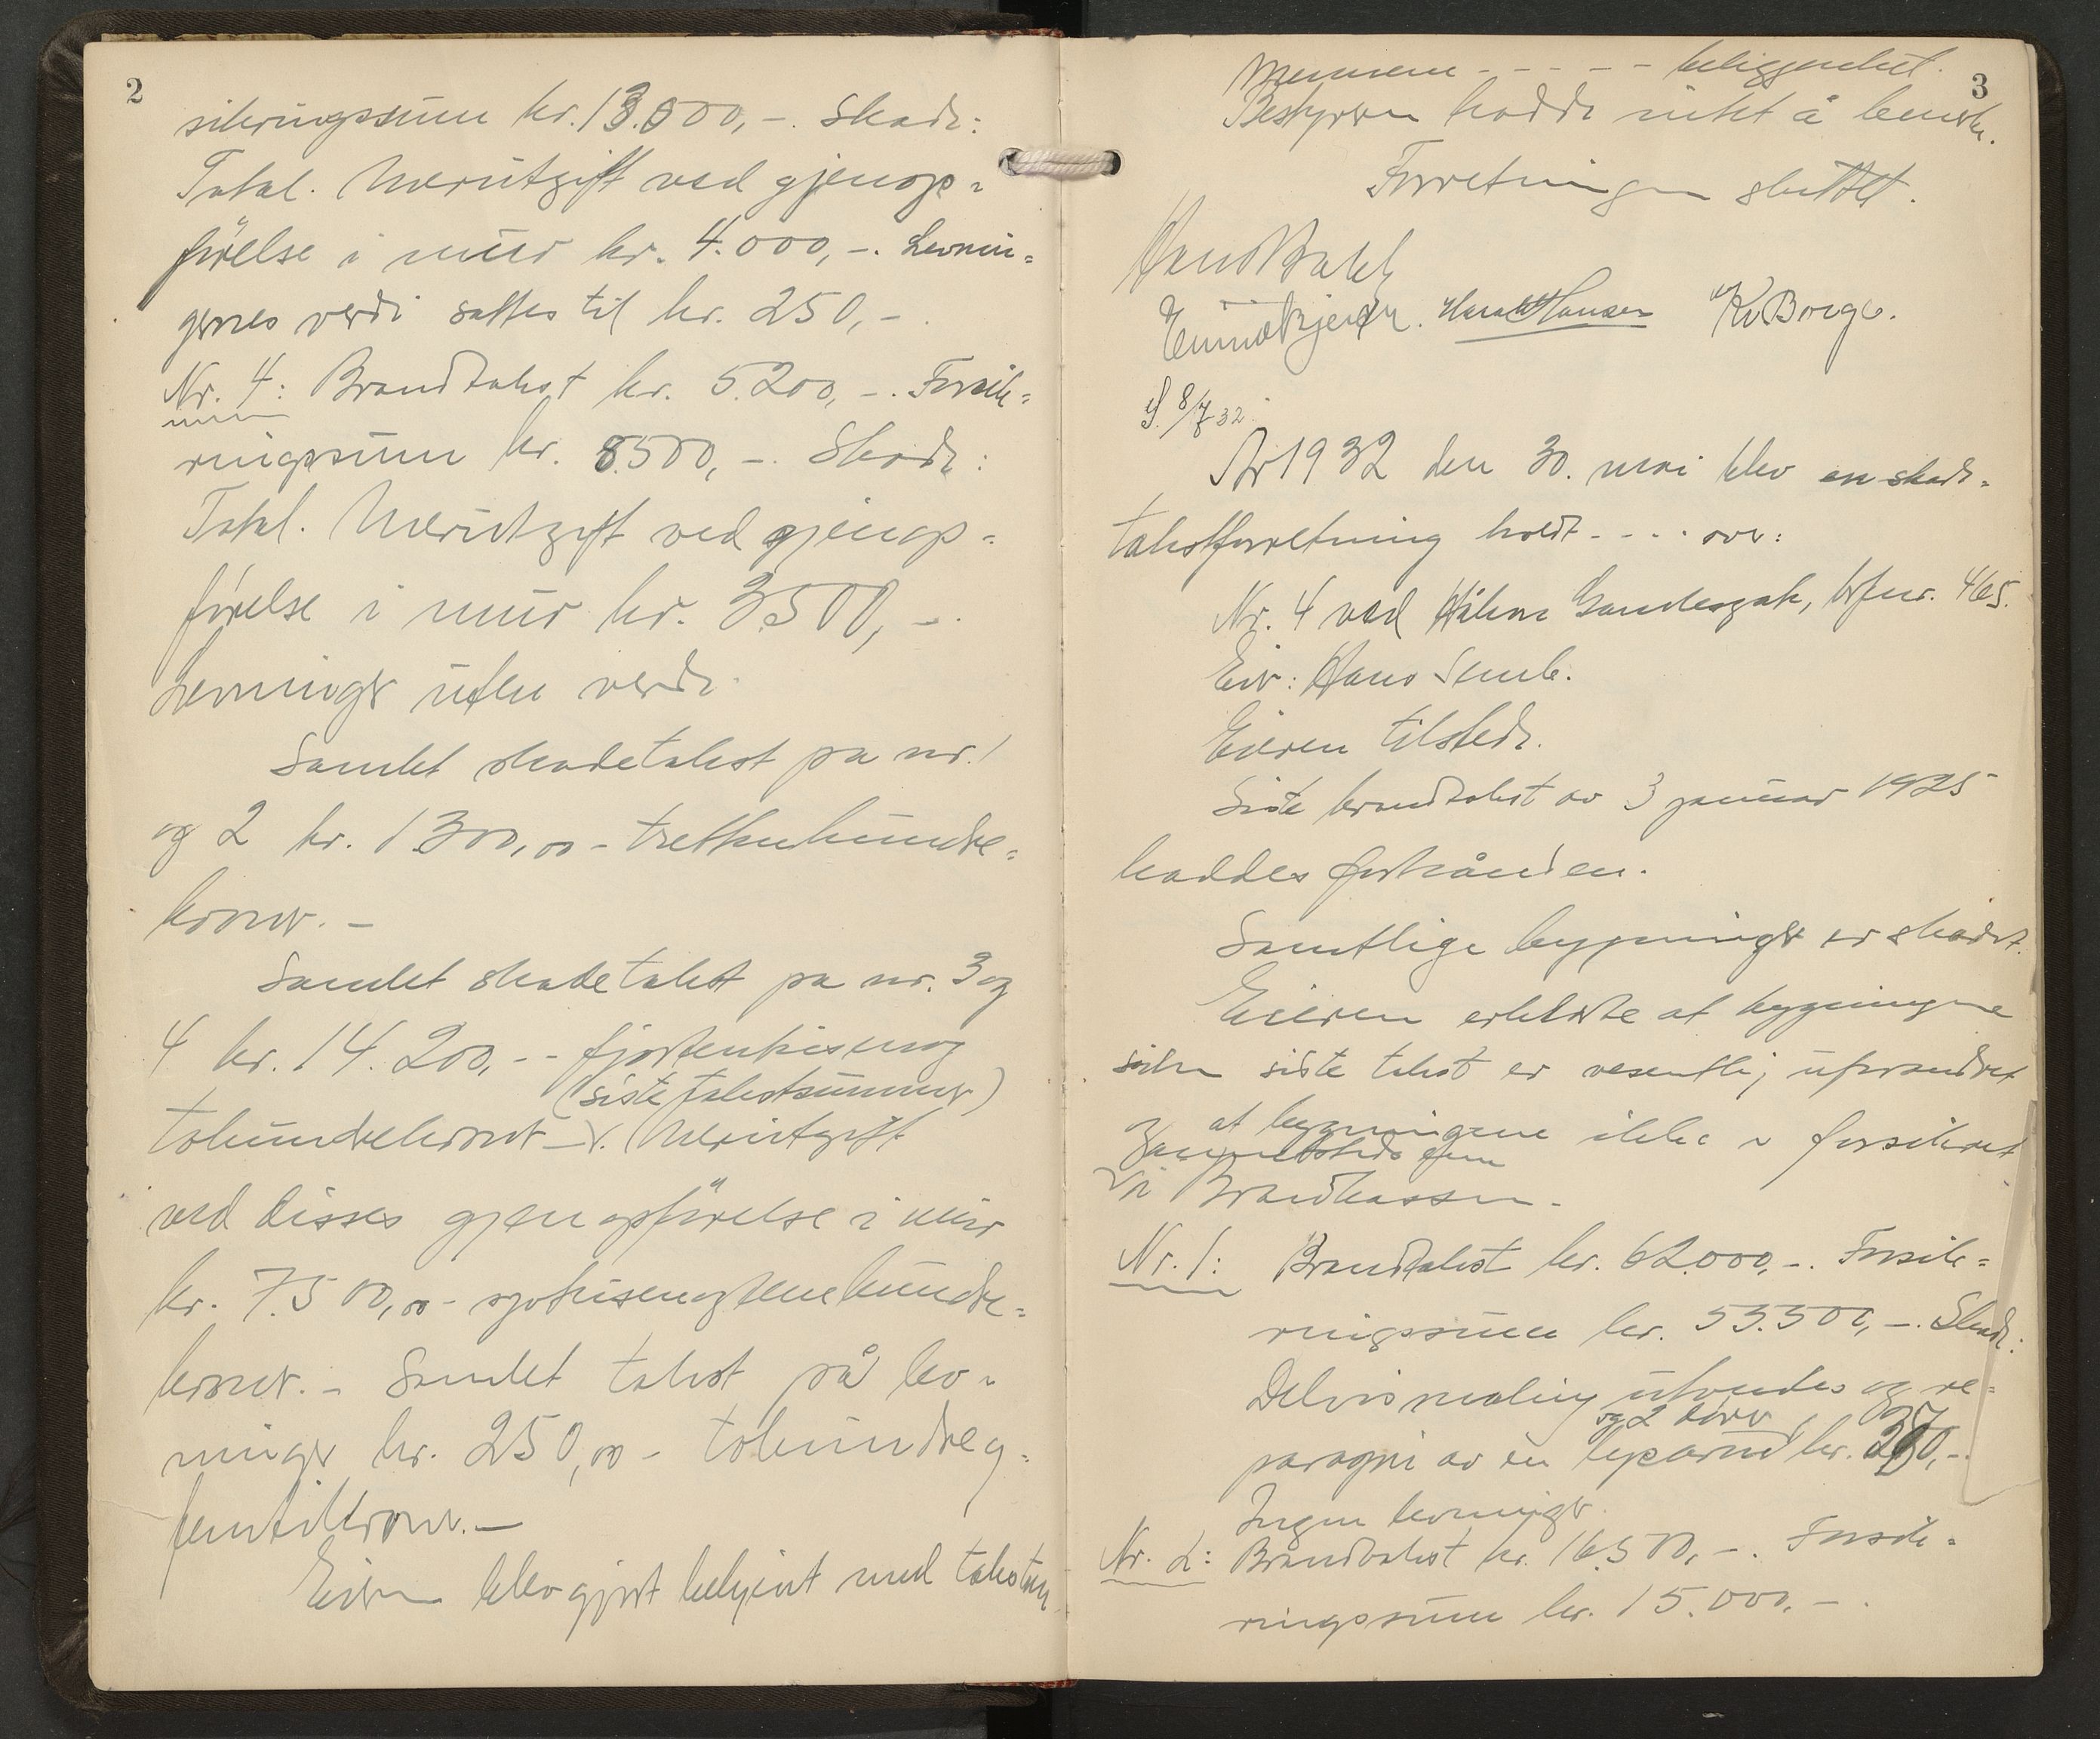 2
sikringssum kr. 13.000,-. Skade:
Total. Merutgift ved gjenop=
förelse i mur kr. 4.000,-. Levnin=
genes verdi sattes til kr. 250,-.
Nr. 4: Brandtakst kr. 5.200,-. Forsik=
ringssum kr. 8500,-. Skade:
Total. Merutgift ved gjenop=
förelse i mur kr. 3500,-.
Levninger uten verdi.
Samlet skadetakst på nr. 1
og 2 kr. 1300,00 - trettenhundre=
kroner. -
Samlet skadetakst på nr. 3 og
4 kr. 14.200,-- fjortentusenog
(siste takstsummer)
tohundrekroner -. Merutgift
ved disses gjenopförelse i mur
kr. 7.500,00 - syvtusenogfemhundre=
kroner. - Samlet takst på lev=
ninger kr. 250,00 - tohundreog=
femtikroner. -
Eieren blev gjort bekjent med taksten
3
Mennene - - - - - beliggenhet.
Bestyreren hadde intet å bemerke.
Forretningen sluttet.
Harald Hansen Kr. Borge.
8/7 32.
År 1932 den 30. mai blev en skade=
takstforretning holdt - - - - over:
Nr. 4 ved gate, brfnr. 465.
Eier: Hans Semb.
Eieren tilstede.
Siste brandtakst av 3 januar 1925
haddes forhånden.
Samtlige bygninger er skadet.
Eieren erklærte at bygningene
siden siste takst er vesentlig uforandret
og at bygningene ikke er forsikret
annetsteds enn
i Brandkassen.
Nr. 1: Brandtakst kr. 62.000,-. Forsik=
ringssum kr. 53.500,-. Skade:
Delvis maling utvendig og re=
og 2 dører
paragni av en kr. 350,-.
Ingen levninger.
Nr. 2: Brandtakst kr. 16.500,-. Forsik=
ringssum kr. 15.000,-.